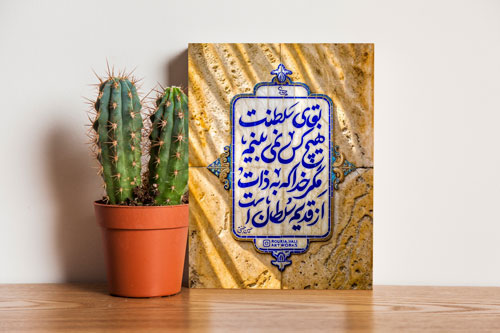 بقوی سلطنت
هیچ کس نمی‌بینم
مگر خدا که به ذات
از قدیم سلطان است
ROUKIA.VALI
ARTWORKS